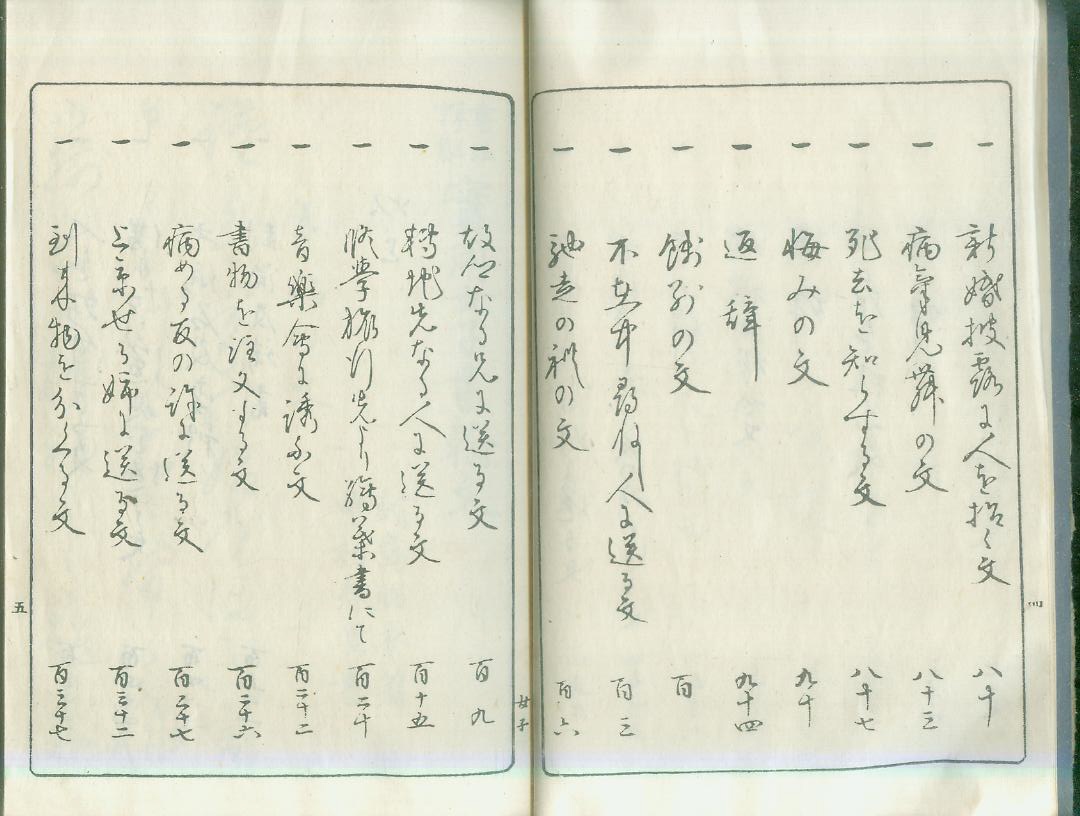 一 新婚披露に人を招く文 八十
一 病氣見舞の文 八十三
一 死去を知らする文 八十七
一 悔みの文 九十
一 返辞 九十四
一 餞別の文 百
一 不在中尋ね人に送る文 百三
一 馳走の礼の文 百六
一 故郷なる兄に送る文 百九
一 転地先なる人に送る文 百十五
一 修學旅行先より繪葉書にて 百二十
一 音樂會に誘ふ文 百二十二
一 書物を注文する文 百二十六
一 病める友の許に送る文 百二十七
一 上京せる姉に送る文 百三十二
一 到来物を分くる文 百三十七
女子
五